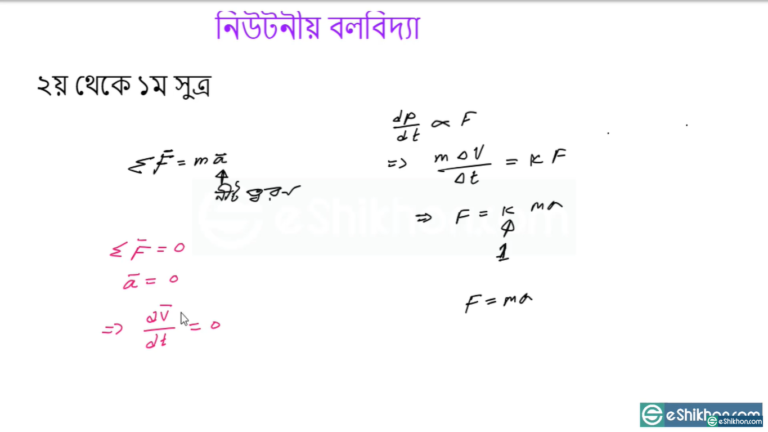 নিউটনীয় বলবিদ্যা
২য় থেকে ১ম সুত্র
Σ F̄ = m ā
নীট ত্বরণ
Σ F̄ = 0
ā = 0
=> dv̄/dt = 0
dp/dt ∝ F
=> m ΔV/Δt = K F
=> F = K ma
1
F = ma
eShikhon.com
eShikhon.com
eShikhon.com